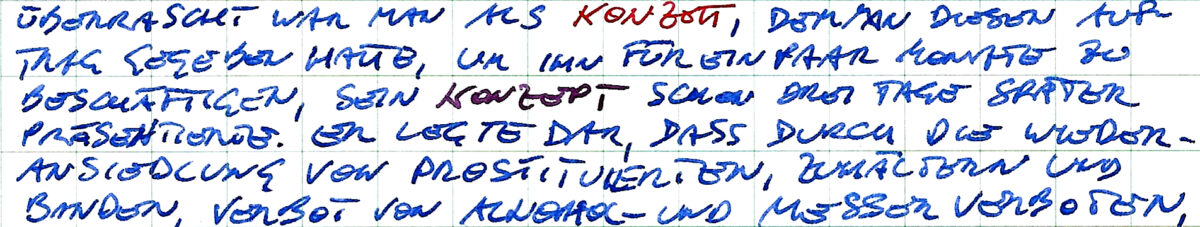 ÜBERRASCHT WAR MAN ALS KONZOTT, DEM MAN DIESEN AUF-
TRAG GEGEBEN HATTE, UM IHN FÜR EIN PAAR MONATE ZU
BESCHÄFTIGEN, SEIN KONZEPT SCHON DREI TAGE SPÄTER
PRÄSENTIERTE. ER LEGTE DAR, DASS DURCH DIE WIEDER-
ANSIEDLUNG VON PROSTITUIERTEN, ZUHÄLTERN UND
BANDEN, VERBOT VON ALKOHOL- UND MESSERVERBOTEN,